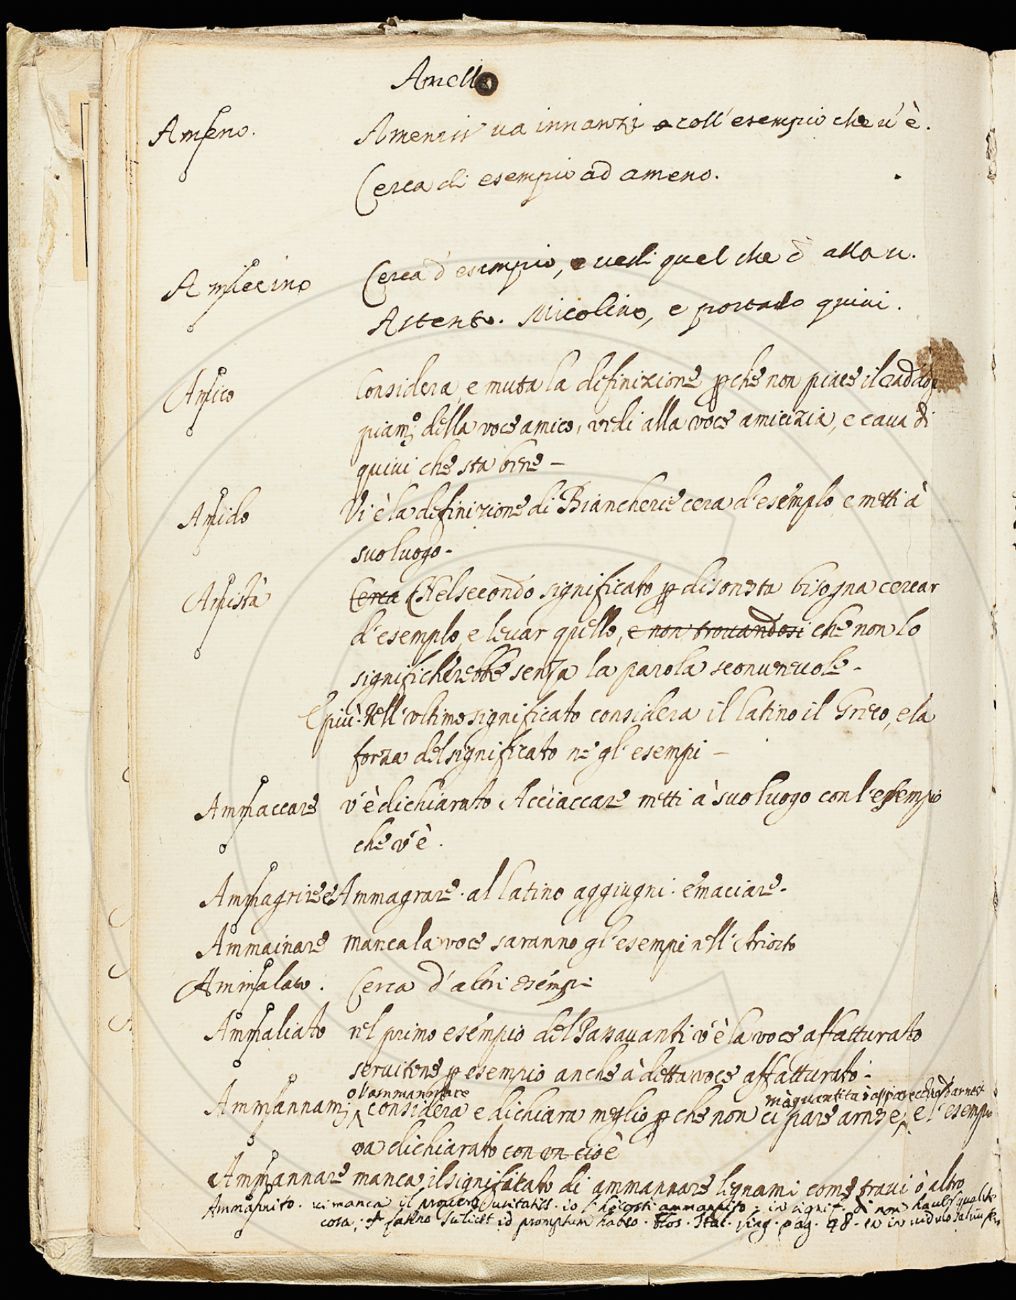 Amello
Ameno. Amenir va innanzi coll' esempio che v' è.
Cerca di esempio ad ameno.
Cerca d' esempio, e vedi quel che è alla v.
Astento. Micolino, e portalo quivi.
Amico Considera, e muta la definizione ꝑche non piace il
della voce amico, vedi alla voce amicizia, e cava di
quivi che sta bene –
Amido Vi è la definizione di Biancherie cerca d'esempio, e metti à
suo luogo.
Amistà Cerca Nel secondo significato ꝑ disonesta bisogna cercar
d'esempio, e levar quello, e non trovandosi che non lo
significherebbe senza la parola sconvenevole.
E più. Nell' ultimo significato considera il latino il Greco, e la
forza del significato ne gl' esempi –
Ammaccare v'è dichiarato Acciaccare metti à suo luogo con l'esempio
che v'è.
Ammagrire e Ammagrare. al latino aggiugni. emaciare.
Ammainare manca la voce saranno gl' esempi nell' Ariosto
Ammalato. Cerca d' altri esempi
Ammaliato nel primo esempio del Passavanti v'è la voce affatturato
servitene ꝑ esempio anche à detta voce affatturato.
Ammannam.to considera e dichiara meglio ꝑche non ci pare arnese, e l'esempio
va dichiarato con un cioè
Ammannare manca il significato di ammannare legnami come travi ò altro
Ammannito. vi manca il
cosa, id promptum habeo. Flos. Ital. ling. pag. 98.